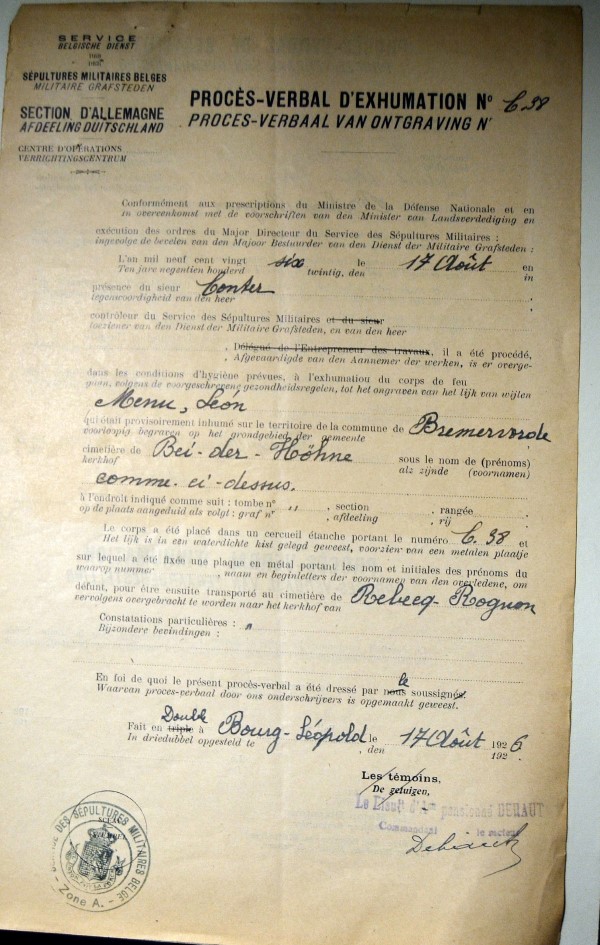 SERVICE
BELGISCHE DIENST
DES
DER
SÉPULTURES MILITAIRES BELGES
MILITAIRE GRAFSTEDEN
SECTION D'ALLEMAGNE
AFDEELING DUITSCHLAND
CENTRE D'OPÉRATIONS
VERRICHTINGSCENTRUM
PROCÈS-VERBAL D'EXHUMATION No C.38
PROCES-VERBAAL VAN ONTGRAVING Nr
Conformément aux prescriptions du Ministre de la Défense Nationale et en
In overeenkomst met de voorschriften van den Minister van Landsverdediging en
exécution des ordres du Major Directeur du Service des Sépultures Militaires :
ingevolge de bevelen van den Majoor Bestuurder van den Dienst der Militaire Grafsteden :
L'an mil neuf cent vingt six le 17 Août en
Ten jare negentien honderd twintig, den in
présence du sieur Conter
tegenwoordigheid van den heer
contrôleur du Service des Sépultures Militaires et du sieur
toeziener van den Dienst der Militaire Grafsteden, en van den heer
, Délégué de l'Entrepreneur des travaux, il a été procédé,
, Afgevaardigde van den Aannemer der werken, is er overge-
dans les conditions d'hygiène prévues, à l'exhumation du corps de feu
gaan, volgens de voorgeschreven gezondheidsregelen, tot het ongraven van het lijk van wijlen
Menu, Léon
qui était provisoirement inhumé sur le territoire de la commune de Bremervorde
voorloopig begraven op het grondgebied der gemeente
cimetière de Bei-der-Höhne sous le nom de (prénoms)
kerkhof als zijnde (voornamen)
comme ci-dessus.
à l'endroit indiqué comme suit : tombe no " , section , rangée
op de plaats aangeduid als volgt : graf nr , afdeeling , rij
Le corps a été placé dans un cercueil étanche portant le numéro C.38 et
Het lijk is in een waterdichte kist gelegd geweest, voorzien van een metalen plaatje
sur lequel a été fixée une plaque en métal portant les nom et initiales des prénoms du
waarop nummer , naam en beginletters der voornamen van den overledene, om
défunt, pour être ensuite transporté au cimetière de Rebecq-Rognon
vervolgens overgebracht te worden naar het kerkhof van
Constatations particulières : "
Bijzondere bevindingen :
En foi de quoi le présent procès-verbal a été dressé par nous le soussignés.
Waarvan proces-verbaal door ons onderschrijvers is opgemaakt geweest.
Double
Fait en triple à Bourg-Léopold le 17 Août 1926
In driedubbel opgesteld te , den 192
Les témoins,
De getuigen,
DEHAUT
Commandant le secteur
SERVICE DES SÉPULTURES MILITAIRES BELGE
Zone A.